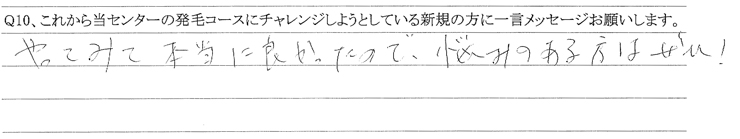 Q10、これから当センターの発毛コースにチャレンジしようとしている新規の方に一言メッセージお願いします。
やってみて本当に良かったので、悩みのある方はぜひ!